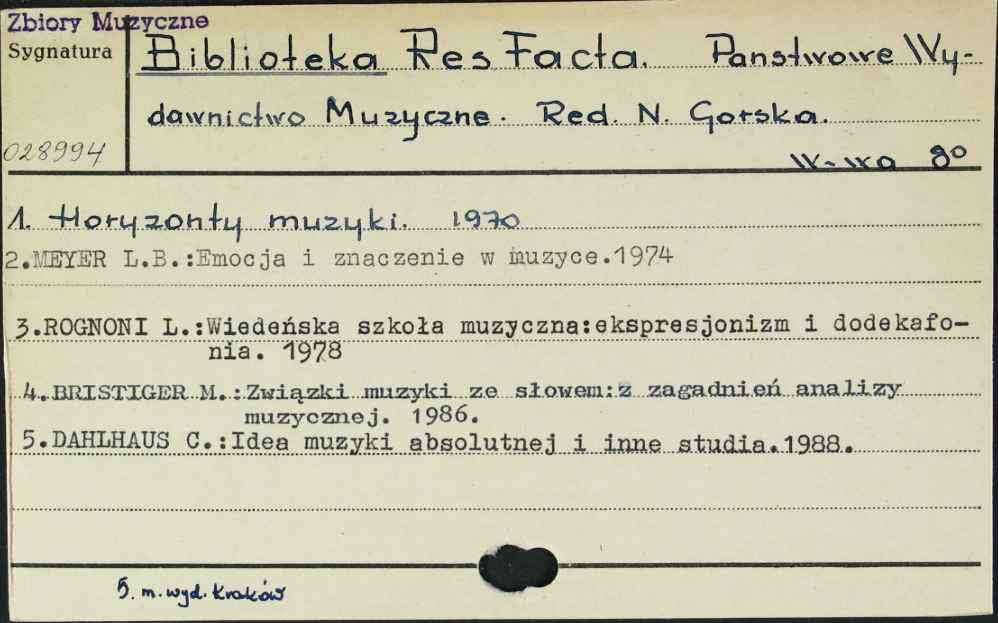 Zbiory Muzyczne
Sygnatura
Biblioteka Res Facta. Panstwowe Wy-
dawnictwo Muzyczne. Red. N. Gorska.
028994
W-wa 8º
1. Horyzonty muzyki. 1970
2.MEYER L.B.:Emocja i znaczenie w muzyce.1974
3.ROGNONI L.:Wiedeńska szkoła muzyczna:ekspresjonizm i dodekafo-
nia. 1978
4.BRISTIGER M.:Związki muzyki ze słowem:z zagadnień analizy
muzycznej. 1986.
5.DAHLHAUS C.:Idea muzyki absolutnej i inne studia.1988.
5. m. wyd. Kraków